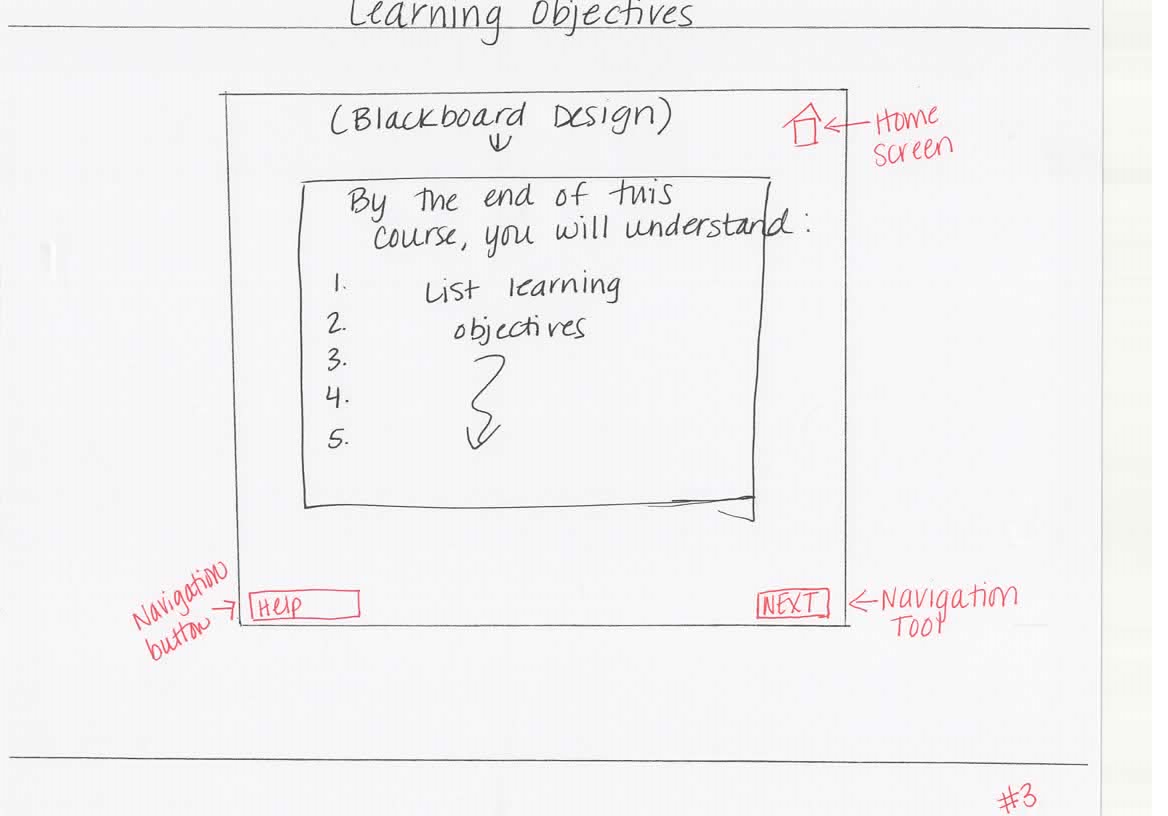 Learning Objectives
(Blackboard Design)
Home
screen
By the end of this
course, you will understand:
1. List learning
2. objectives
3.
4.
5.
Navigation
button
Help
NEXT
Navigation
Tool
#3